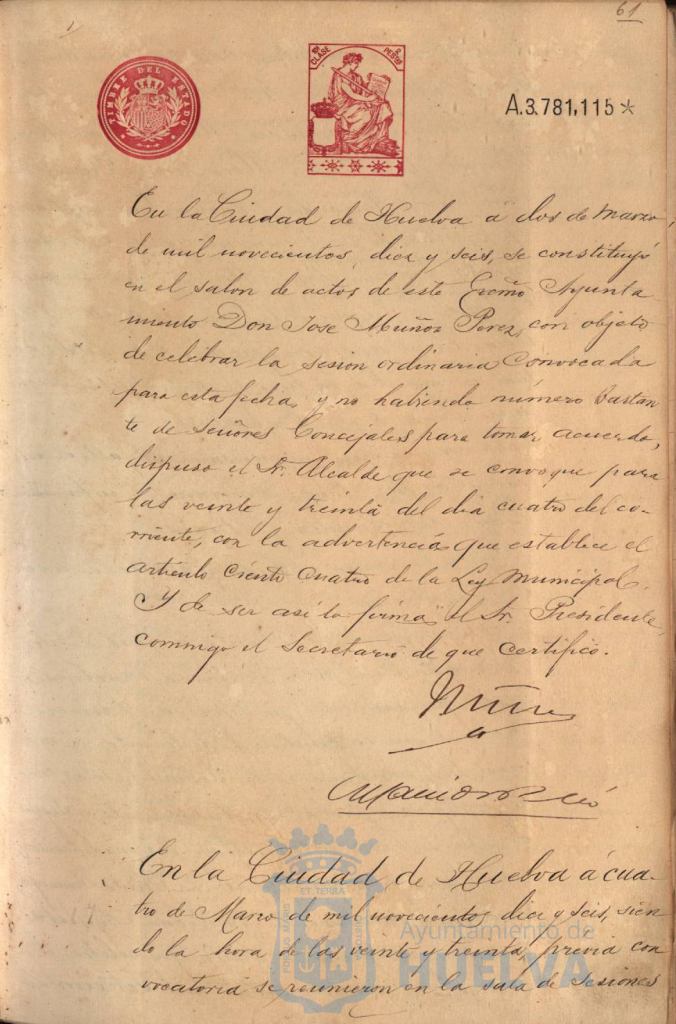 61
TIMBRE DEL ESTADO
10ª CLASE
2 PESETAS
A.3.781,115*
En la Ciudad de Huelva á dos de Marzo,
de mil novecientos, diez y seis, se constituyó
en el salon de actos de este Excmo Ayunta
miento Don Jose Muñoz Perez, con objeto
de celebrar la sesion ordinaria convocada
para esta fecha, y no habiendo número bastan
te de Señores Concejales para tomar acuerdo,
dispuso el Sr. Alcalde que se convoque para
las veinte y treinta del dia cuatro del co-
rriente, con la advertencia que establece el
artículo ciento cuatro de la Ley Municipal.
Y de ser así lo firma el Sr. Presidente,
conmigo el Secretario de que certifico.
En la Ciudad de Huelva á cua-
tro de Marzo de mil novecientos diez y seis, sien
do la hora de las veinte y treinta, previa con
vocatoria se reunieron en la sala de Sesiones
ET TERRA
Ayuntamiento de
HUELVA